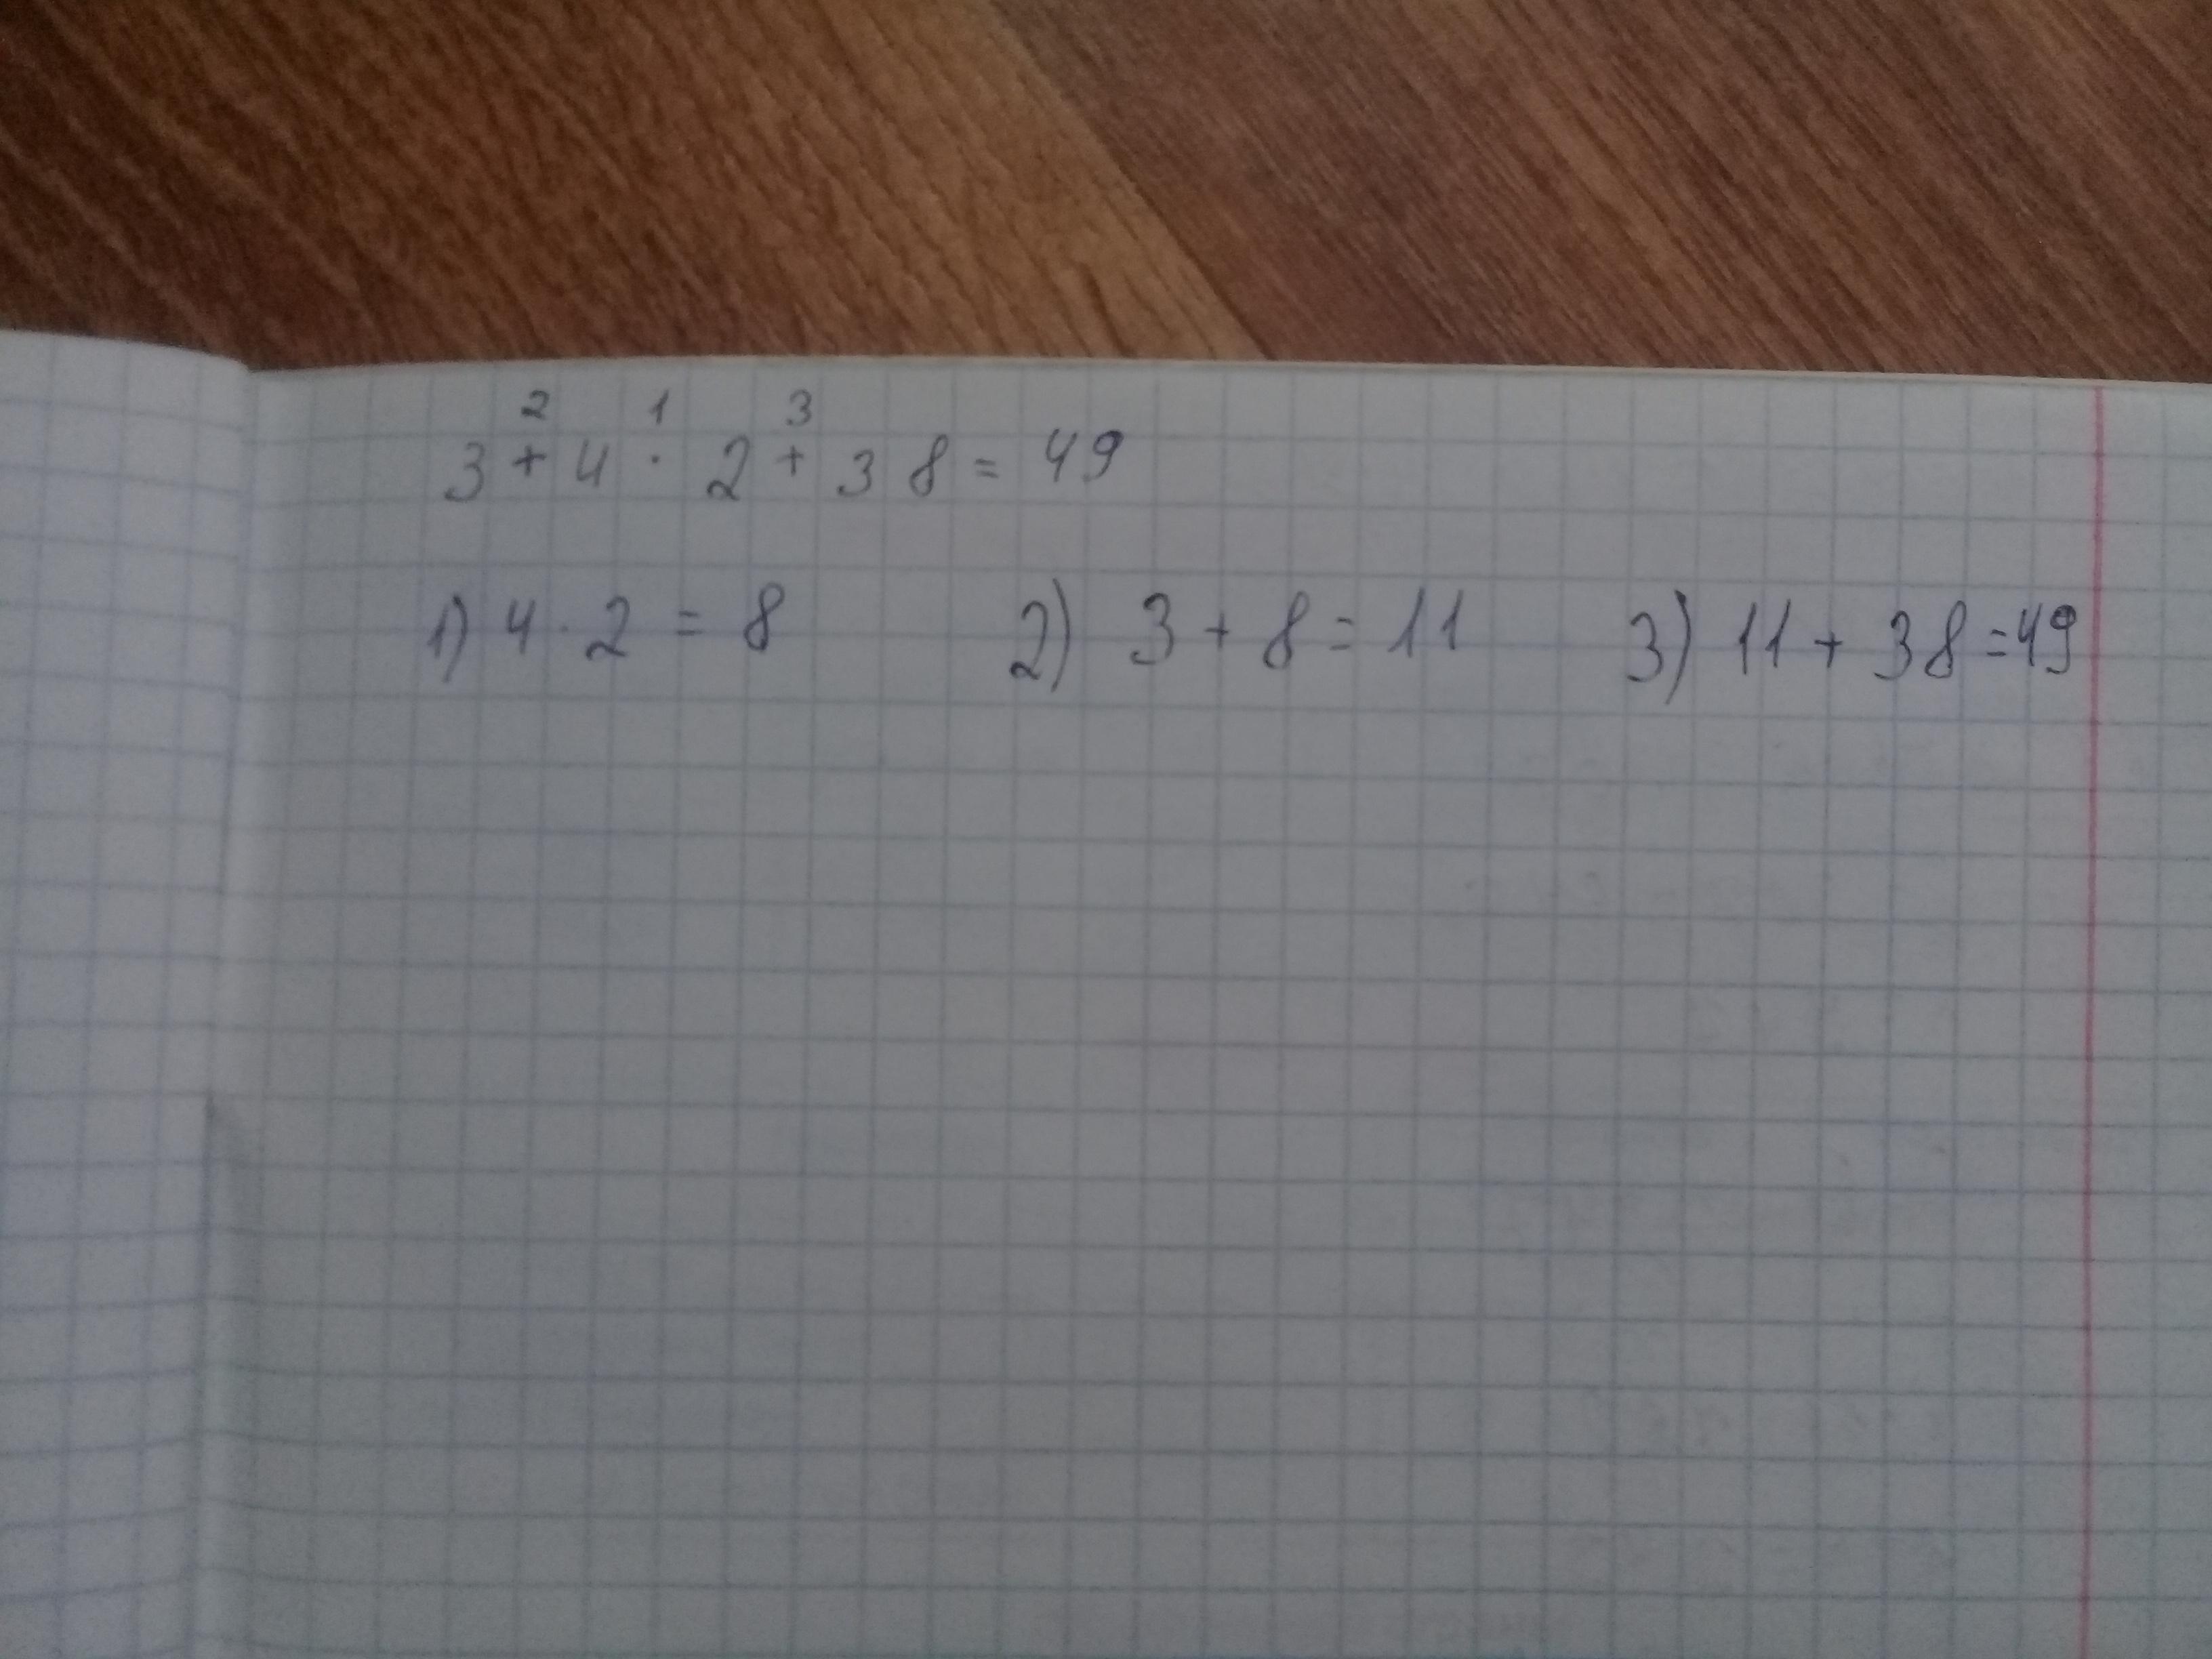 2 1 3
3 + 4 · 2 + 38 = 49
1) 4 · 2 = 8 2) 3 + 8 = 11 3) 11 + 38 = 49